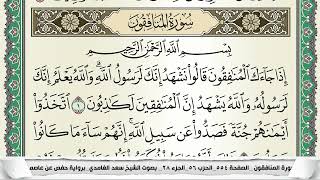 سُورَةُ المُنَافِقُونَ
بِسْمِ اللَّهِ الرَّحْمَٰنِ الرَّحِيمِ
إِذَا جَآءَكَ ٱلْمُنَٰفِقُونَ قَالُوا۟ نَشْهَدُ إِنَّكَ لَرَسُولُ ٱللَّهِ وَٱللَّهُ يَعْلَمُ إِنَّكَ
لَرَسُولُهُۥ وَٱللَّهُ يَشْهَدُ إِنَّ ٱلْمُنَٰفِقِينَ لَكَٰذِبُونَ ١ ٱتَّخَذُوٓا۟
أَيْمَٰنَهُمْ جُنَّةً فَصَدُّوا۟ عَن سَبِيلِ ٱللَّهِ إِنَّهُمْ سَآءَ مَا كَانُوا۟
ورة المنافقون . الصفحة ٥٥٤ الحزب ٥٦ الجزء ٢٨ . بصوت الشيخ سعد الغامدي برواية حفص عن عاصم